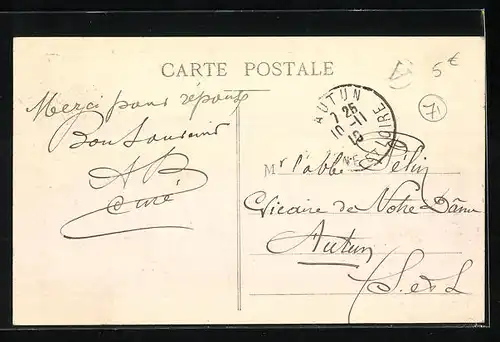 CARTE POSTALE
5€
71
Merci pour réponse
Bon Souvenir
A B
Curé
AUTUN
7 25
10-11
LOIRE
Mr l'abbé Pélin
Vicaire de Notre Dame
Autun
(S. et L